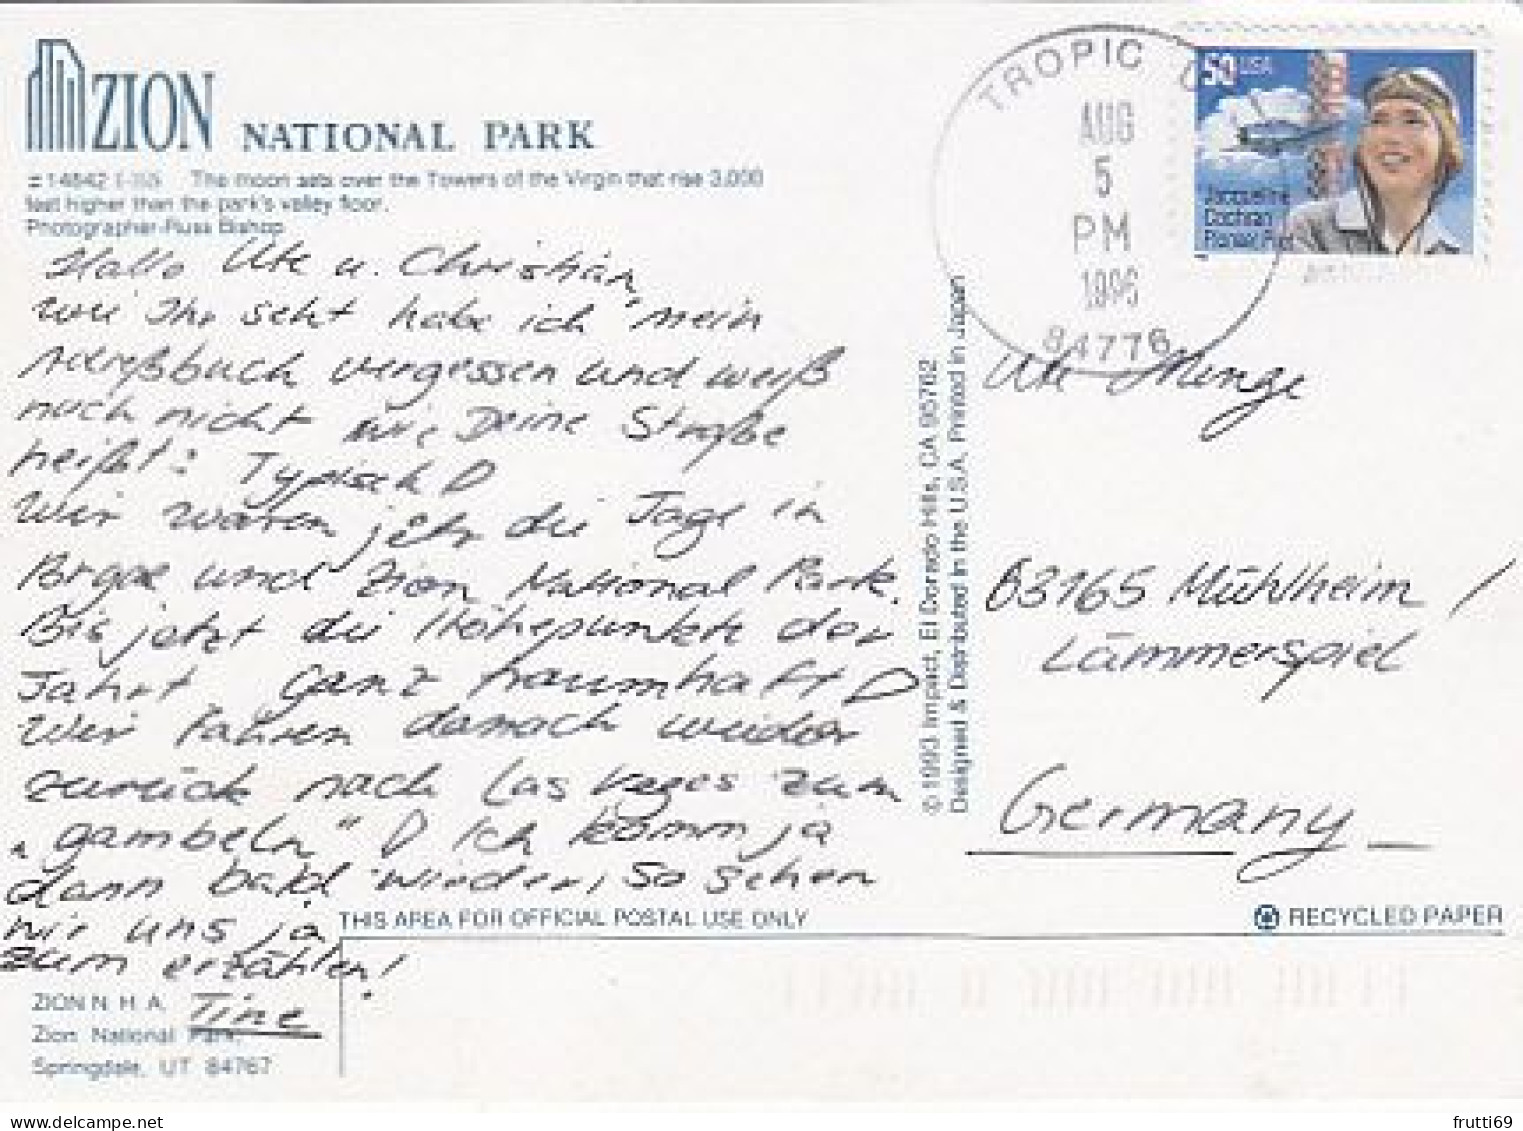 ZION NATIONAL PARK
#14842 The moon sets over the Towers of the Virgin that rise 3,000
feet higher than the park's valley floor.
Photographer-Russ Bishop
Hallo Ute u. Christian,
wie Ihr seht habe ich mein
Adreßbuch vergessen und weiß
noch nicht wie Deine Straße
heißt: Typisch!
Wir waren jetzt die Tage in
und Zion National Park.
Bis jetzt die Höhepunkte der
Fahrt ganz traumhaft!
Wir fahren danach wieder
zurück nach Las Vegas zum
„gambeln"! Ich komm ja
dann bald wieder, so sehen
wir uns ja
zum erzählen!
Tine
ZION N. H. A.
Zion National Park,
Springdale, UT 84767
© 1993 Impact, El Dorado Hills, CA 95762
Designed & Distributed in the U.S.A. Printed in Japan
TROPIC
AUG
5
PM
1996
84776
50 USA
Jacqueline
Cochran
Pioneer Pilot
Ute Munge
63165 Mühlheim /
Lämmerspiel
Germany
THIS AREA FOR OFFICIAL POSTAL USE ONLY
RECYCLED PAPER
frutti69